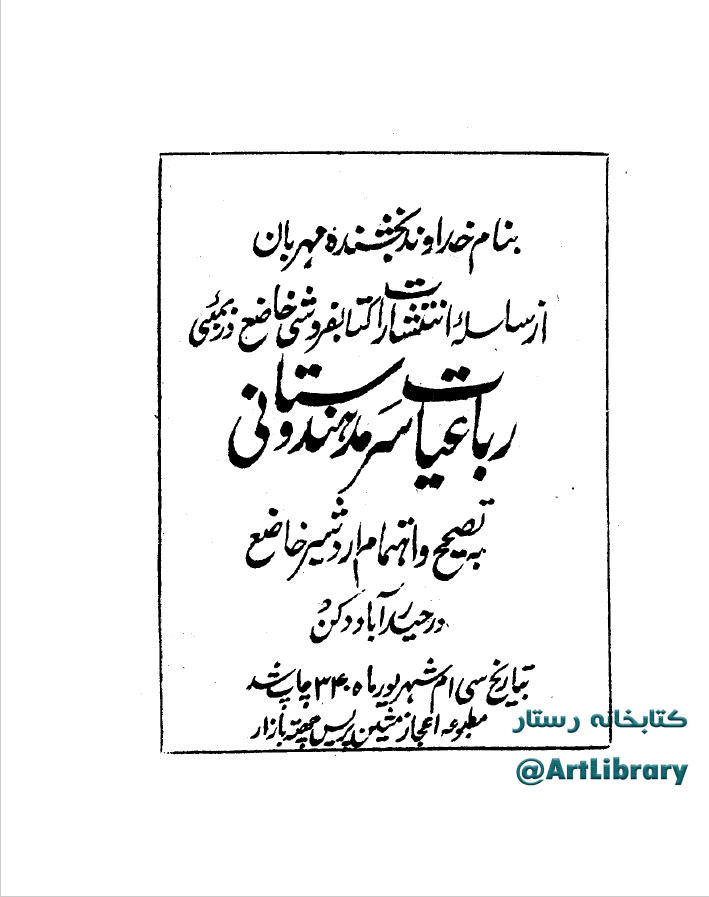 بنام خداوند بخشنده مهربان
از سلسلهٔ انتشارات کتابفروشی خاضع در بمبئی
رباعیات سرمد هندوستانی
به تصحیح و اهتمام اردشیر خاضع
در حیدرآباد دکن
بتاریخ سی ام شهریور ماه ۳۴۰ چاپ شد
مطبوعه اعجاز مشین پریس چهته بازار
کتابخانه رستار
@ArtLibrary